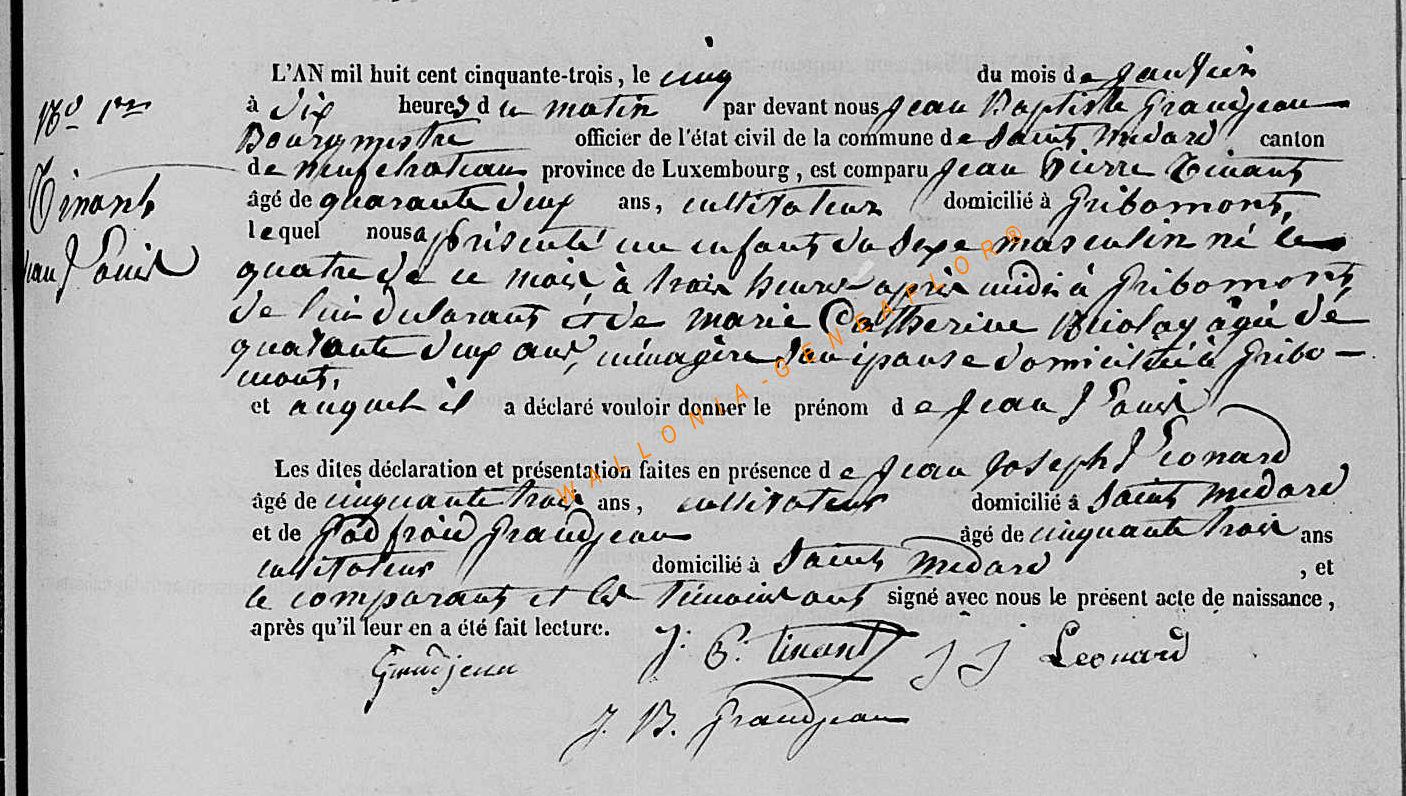 N° 1er
Tinant
Jean Louis
L'AN mil huit cent cinquante-trois, le cinq du mois de Janvier
à dix heures du matin par devant nous Jean Baptiste Grandjean
Bourgmestre officier de l'état civil de la commune de Saint Médard canton
de neufchateau province de Luxembourg, est comparu Jean Pierre Tinant
âgé de quarante deux ans, cultivateur domicilié à Gribomont,
lequel nous a présenté un enfant du sexe masculin né le
quatre de ce mois à trois heures après midi à Gribomont
de lui déclarant et de marie Catherine Nicolay âgée de
quarante deux ans, ménagère son épouse domiciliée à Gribo-
mont,
et auquel il a déclaré vouloir donner le prénom de Jean Louis
Les dites déclaration et présentation faites en présence de Jean Joseph Léonard
âgé de cinquante trois ans, cultivateur domicilié à Saint Médard
et de Godfroid Grandjean âgé de cinquante trois ans
cultivateur domicilié à Saint Médard , et
le comparant et les témoins ont signé avec nous le présent acte de naissance,
après qu'il leur en a été fait lecture.
Grandjean J. P. tinant J J Leonard
J. B. Grandjean
WALLONIA-GENEAFLOR®